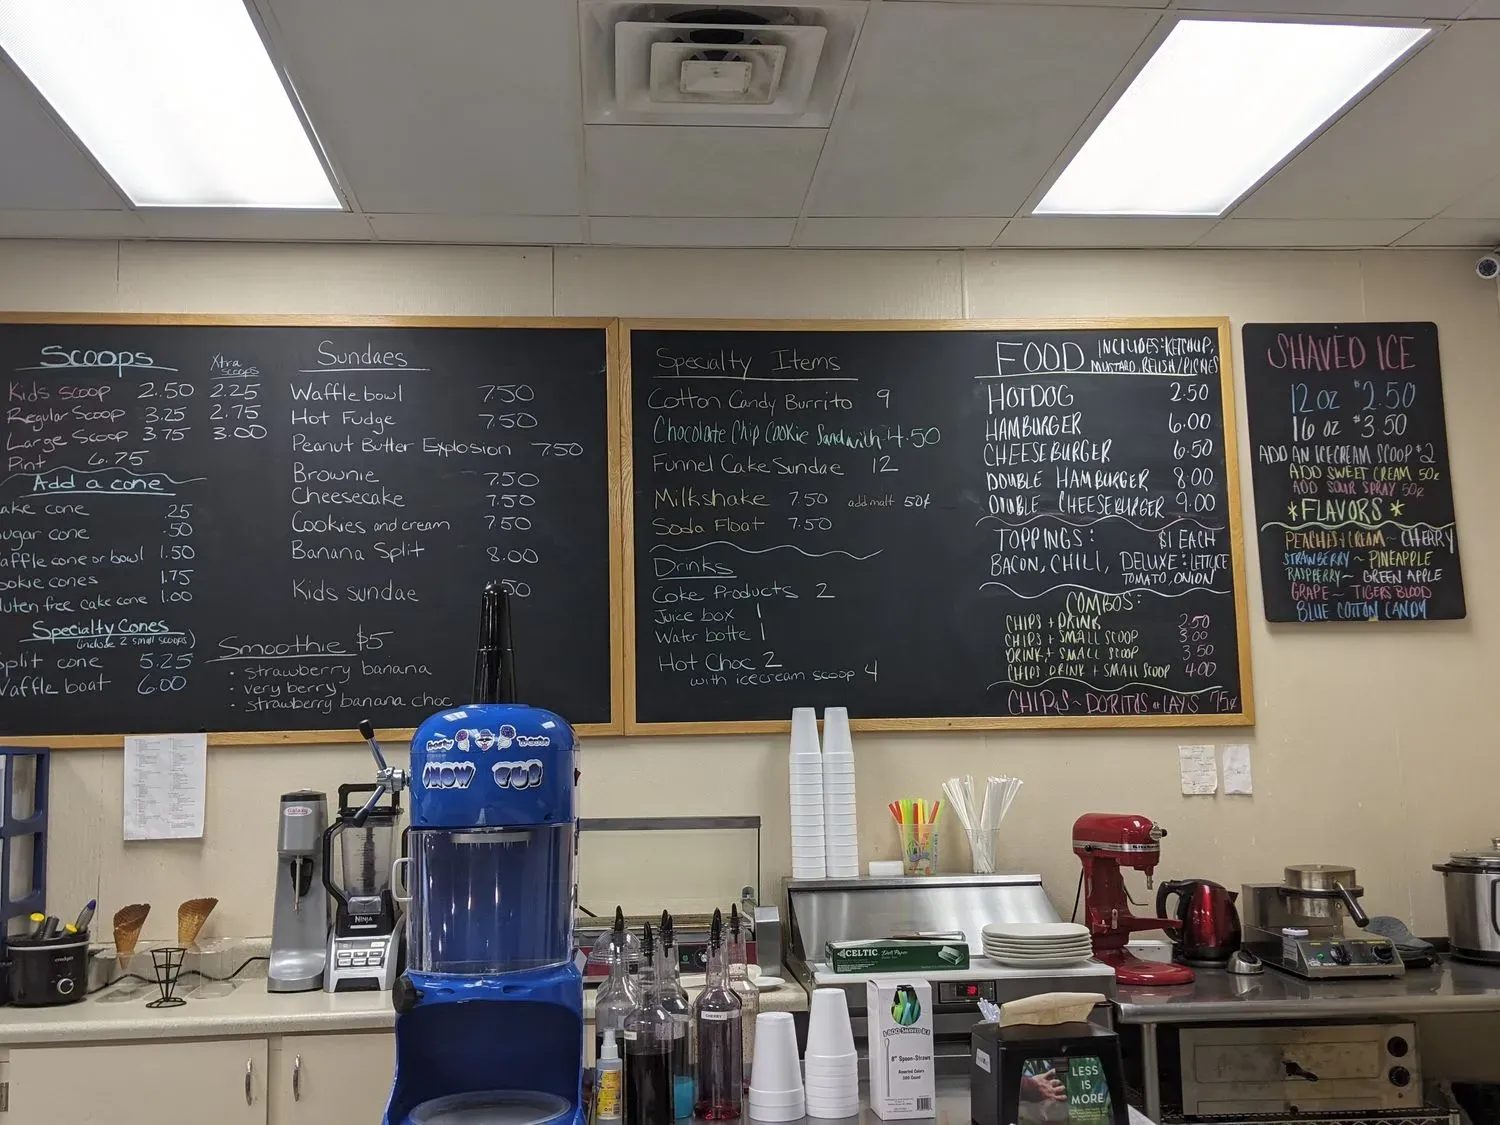 Scoops
Xtra scoops
Kids scoop 2.50 2.25
Regular Scoop 3.25 2.75
Large Scoop 3.75 3.00
Pint 6.75
Add a cone
ake cone .25
ugar cone .50
affle cone or bowl 1.50
ookie cones 1.75
luten free cake cone 1.00
Specialty Cones
(include 2 small scoops)
plit cone 5.25
Waffle boat 6.00
Sundaes
Waffle bowl 7.50
Hot Fudge 7.50
Peanut Butter Explosion 7.50
Brownie 7.50
Cheesecake 7.50
Cookies and cream 7.50
Banana Split 8.00
Kids sundae 50
Smoothie $5
• strawberry banana
• very berry
• strawberry banana choc
Specialty Items
Cotton Candy Burrito 9
Chocolate Chip Cookie Sandwich 4.50
Funnel Cake Sundae 12
Milkshake 7.50 add malt 50¢
Soda Float 7.50
Drinks
Coke Products 2
Juice box 1
Water bottle 1
Hot Choc 2
with icecream scoop 4
FOOD INCLUDES: KETCHUP,
MUSTARD, RELISH/PICKLES
HOTDOG 2.50
HAMBURGER 6.00
CHEESEBURGER 6.50
DOUBLE HAMBURGER 8.00
DOUBLE CHEESEBURGER 9.00
TOPPINGS: $1 EACH
BACON, CHILI, DELUXE: LETTUCE
TOMATO, ONION
COMBOS:
CHIPS + DRINK 2.50
CHIPS + SMALL SCOOP 3.00
DRINK + SMALL SCOOP 3.50
CHIPS, DRINK + SMALL SCOOP 4.00
CHIPS ~ DORITOS or LAYS 75¢
SHAVED ICE
12 oz $2.50
16 oz $3.50
ADD AN ICECREAM SCOOP $2
ADD SWEET CREAM 50¢
ADD SOUR SPRAY 50¢
*FLAVORS*
PEACHES+CREAM ~ CHERRY
STRAWBERRY ~ PINEAPPLE
RASPBERRY ~ GREEN APPLE
GRAPE ~ TIGERS BLOOD
BLUE COTTON CANDY
SNOW CUB
NINJA
CELTIC
CHERRY
8" Spoon-Straws
Assorted Colors
LESS
IS
MORE
KitchenAid